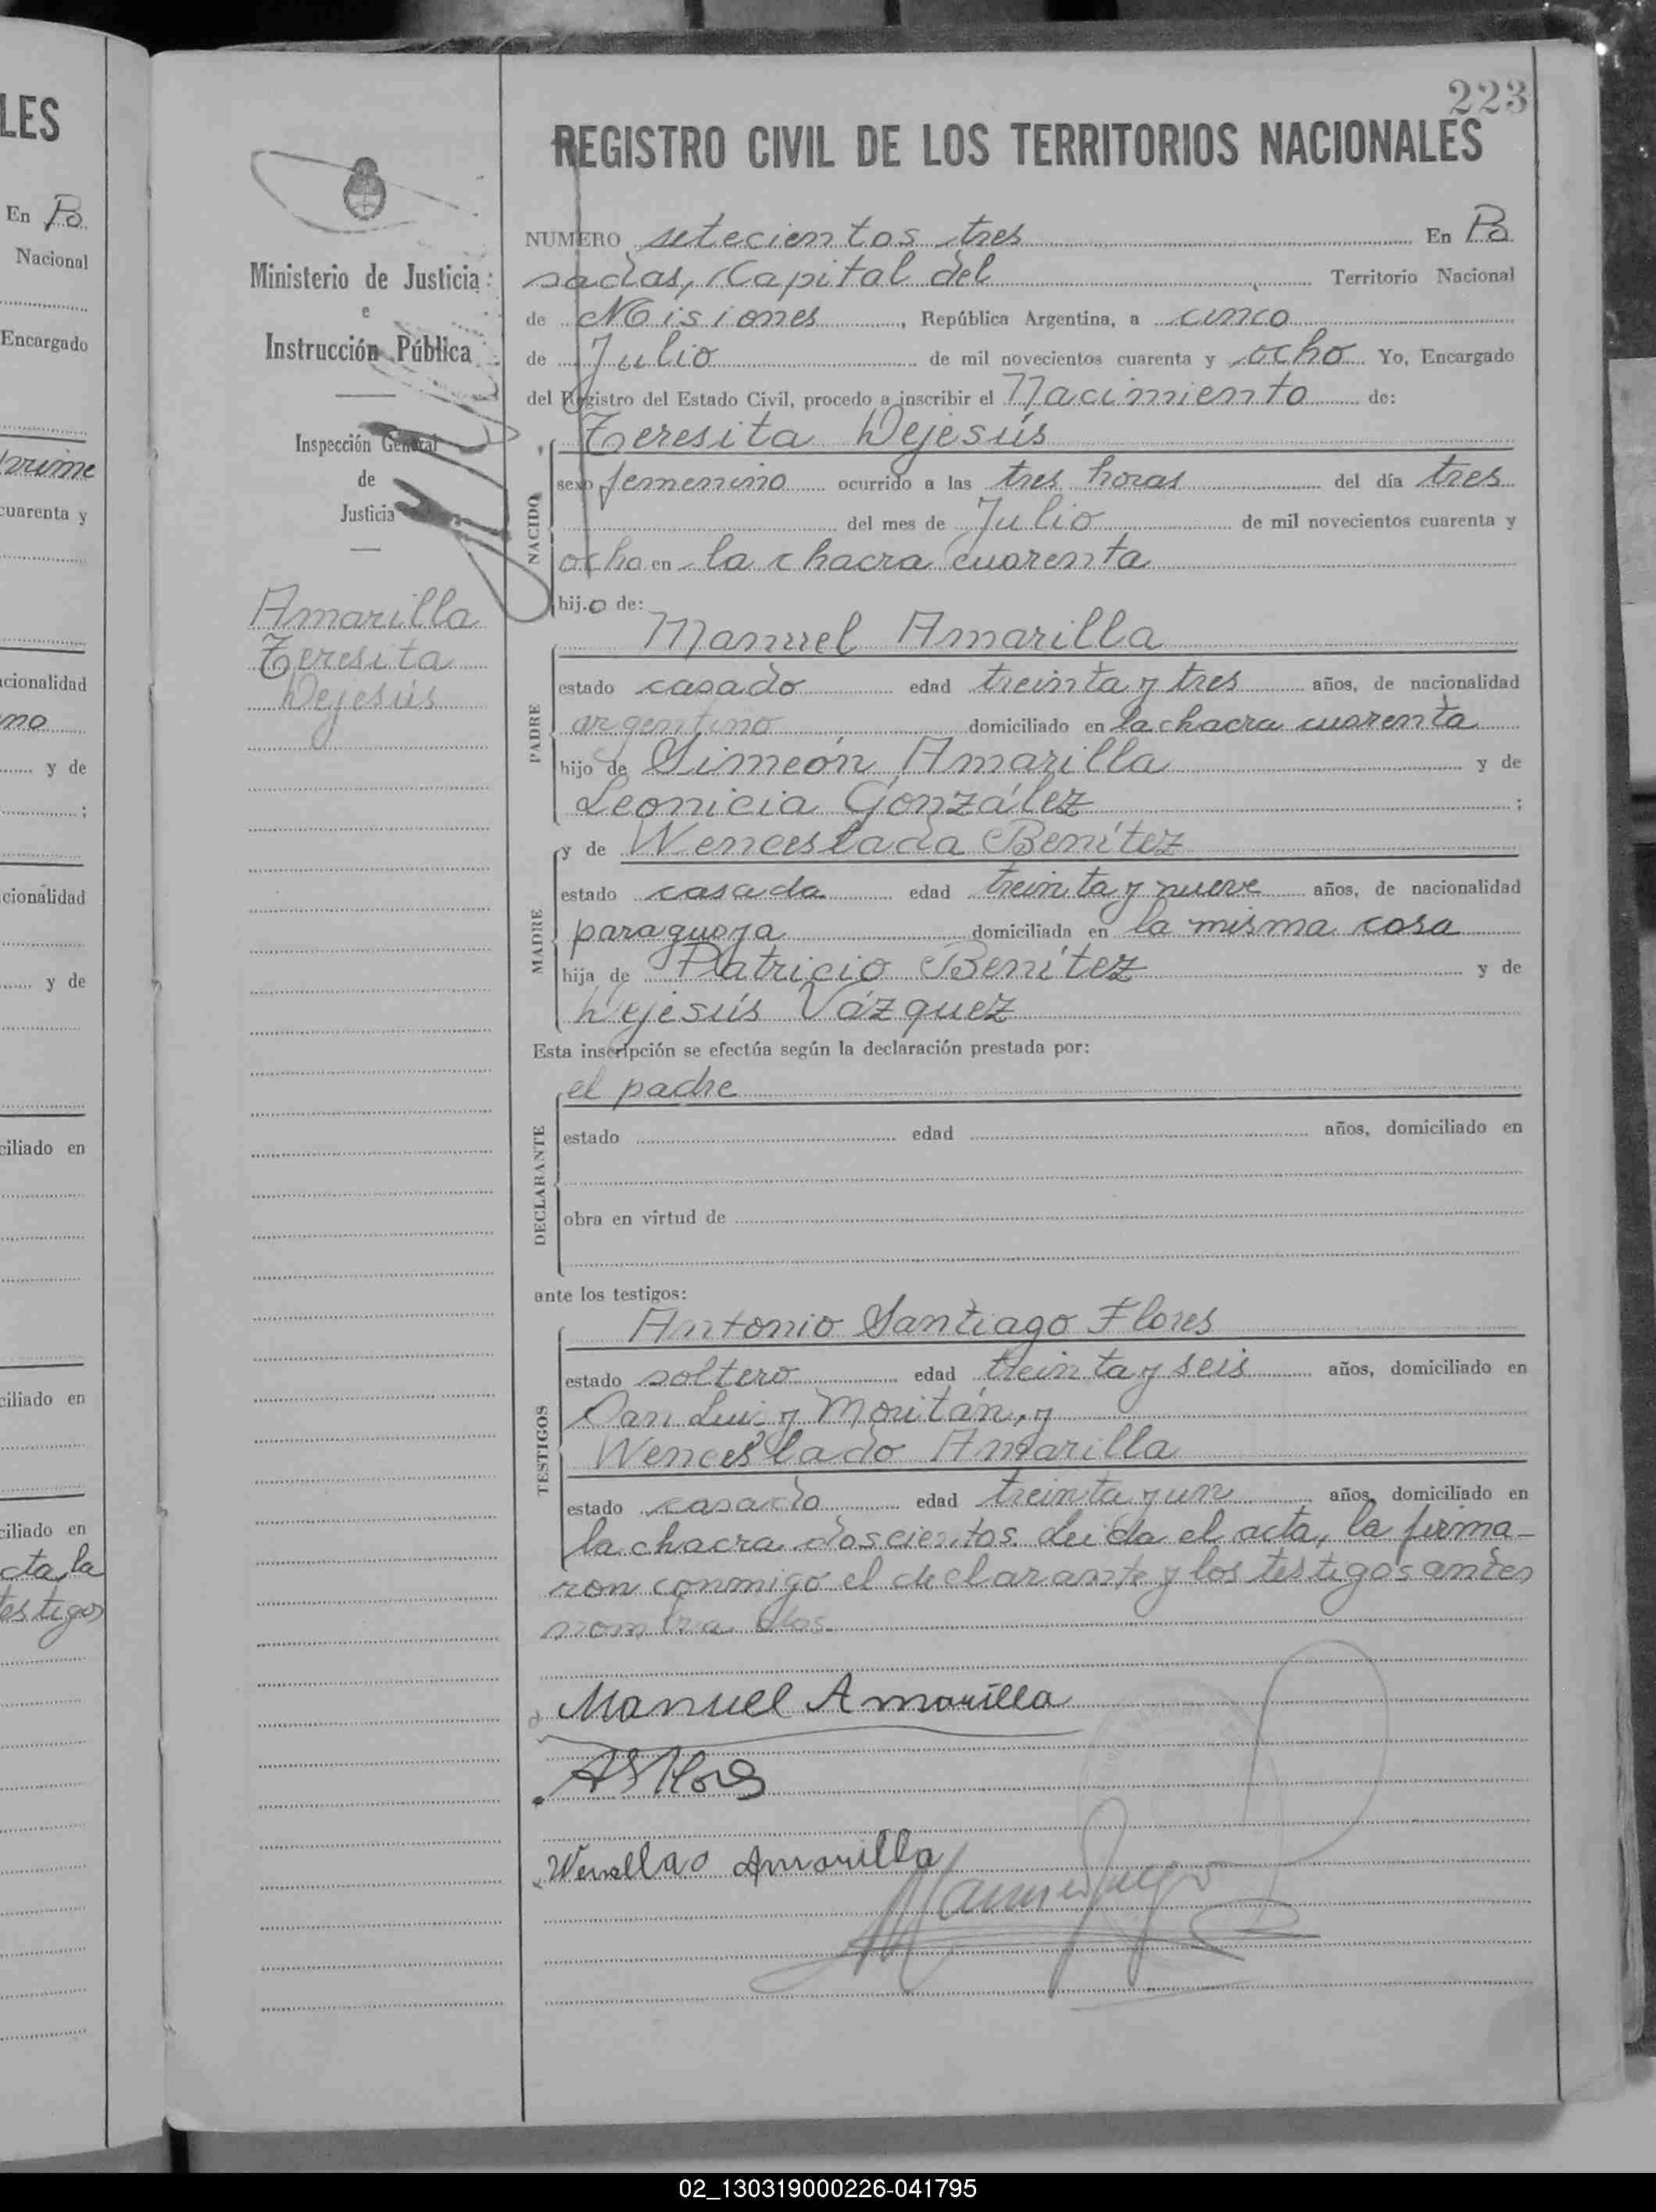 LES
En Po
Nacional
Encargado
cuarenta y
acionalidad
y de
;
cionalidad
y de
ciliado en
ciliado en
ciliado en
cta, la
estigos
223
REGISTRO CIVIL DE LOS TERRITORIOS NACIONALES
Ministerio de Justicia
e
Instrucción Pública
Inspección General
de
Justicia
Amarilla
Teresita
Dejesús
NUMERO setecientos tres En Po
sadas, Capital del Territorio Nacional
de Misiones, República Argentina, a cinco
de Julio de mil novecientos cuarenta y ocho Yo, Encargado
del Registro del Estado Civil, procedo a inscribir el Nacimiento de:
NACIDO
Teresita Dejesús
sexo femenino ocurrido a las tres horas del día tres
del mes de Julio de mil novecientos cuarenta y
ocho en la chacra cuarenta
hijo de:
PADRE
Manuel Amarilla
estado casado edad treinta y tres años, de nacionalidad
argentino domiciliado en la chacra cuarenta
hijo de Simeón Amarilla y de
Leonicia González ;
MADRE
y de Wenceslada Benítez
estado casada edad treinta y nueve años, de nacionalidad
paraguaya domiciliada en la misma casa
hija de Patricio Benítez y de
Dejesús Vázquez
Esta inscripción se efectúa según la declaración prestada por:
DECLARANTE
el padre
estado edad años, domiciliado en
obra en virtud de
ante los testigos:
TESTIGOS
Antonio Santiago Flores
estado soltero edad treinta y seis años, domiciliado en
San Luis y Moritán, y
Wenceslado Amarilla
estado casado edad treinta y un años, domiciliado en
la chacra doscientos. Leída el acta, la firma-
ron conmigo el declarante y los testigos antes
nombrados.
Manuel Amarilla
AS Flores
Amarilla
02_130319000226-041795